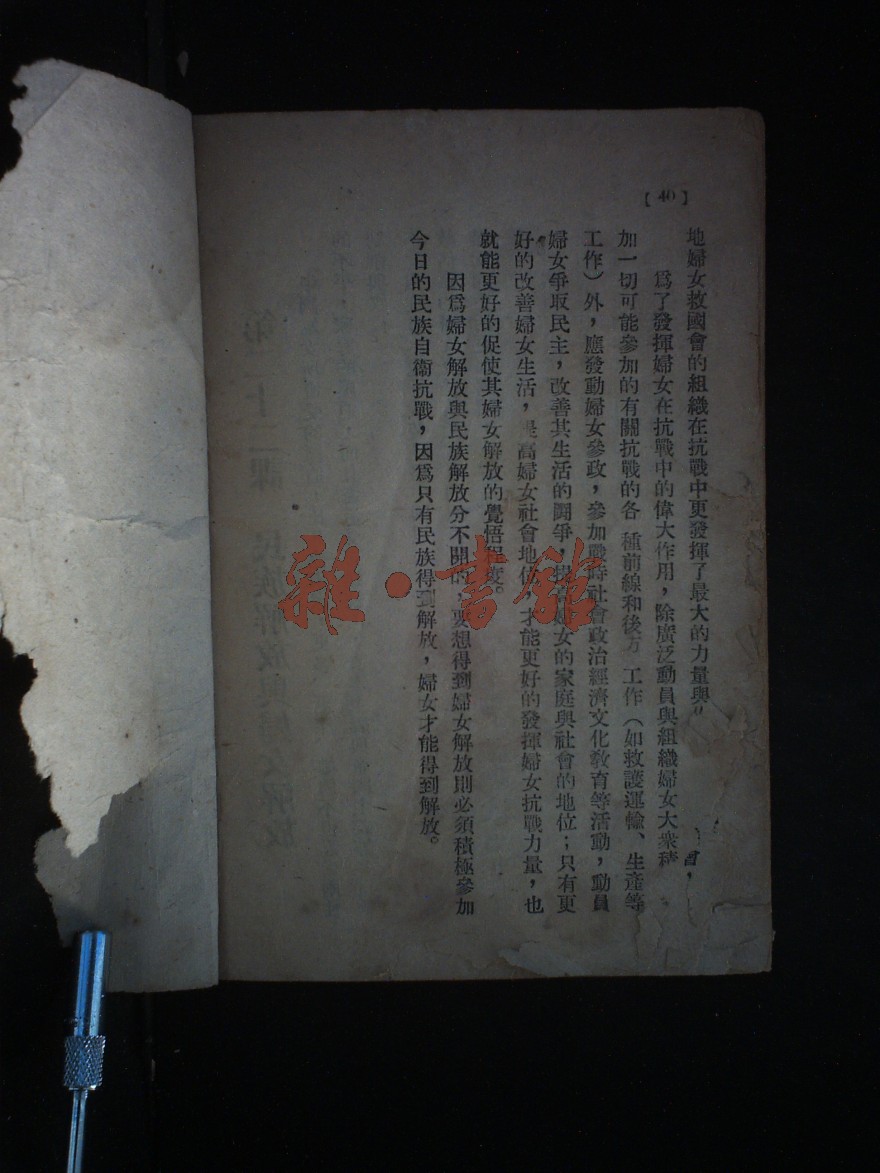 【40】
地婦女救國會的組織在抗戰中更發揮了最大的力量與
爲了發揮婦女在抗戰中的偉大作用，除廣泛動員與組織婦女大衆積
加一切可能參加的有關抗戰的各種前線和後方工作（如救護運輸、生產等
工作）外，應發動婦女參政，參加戰時社會政治經濟文化教育等活動，動員
婦女爭取民主，改善其生活的鬪爭，提高婦女的家庭與社會的地位；只有更
好的改善婦女生活，提高婦女社會地位，才能更好的發揮婦女抗戰力量，也
就能更好的促使其婦女解放的覺悟程度。
因爲婦女解放與民族解放分不開的，要想得到婦女解放則必須積極參加
今日的民族自衞抗戰，因爲只有民族得到解放，婦女才能得到解放。
第十二課 民族解放與婦女解放
雜·書館